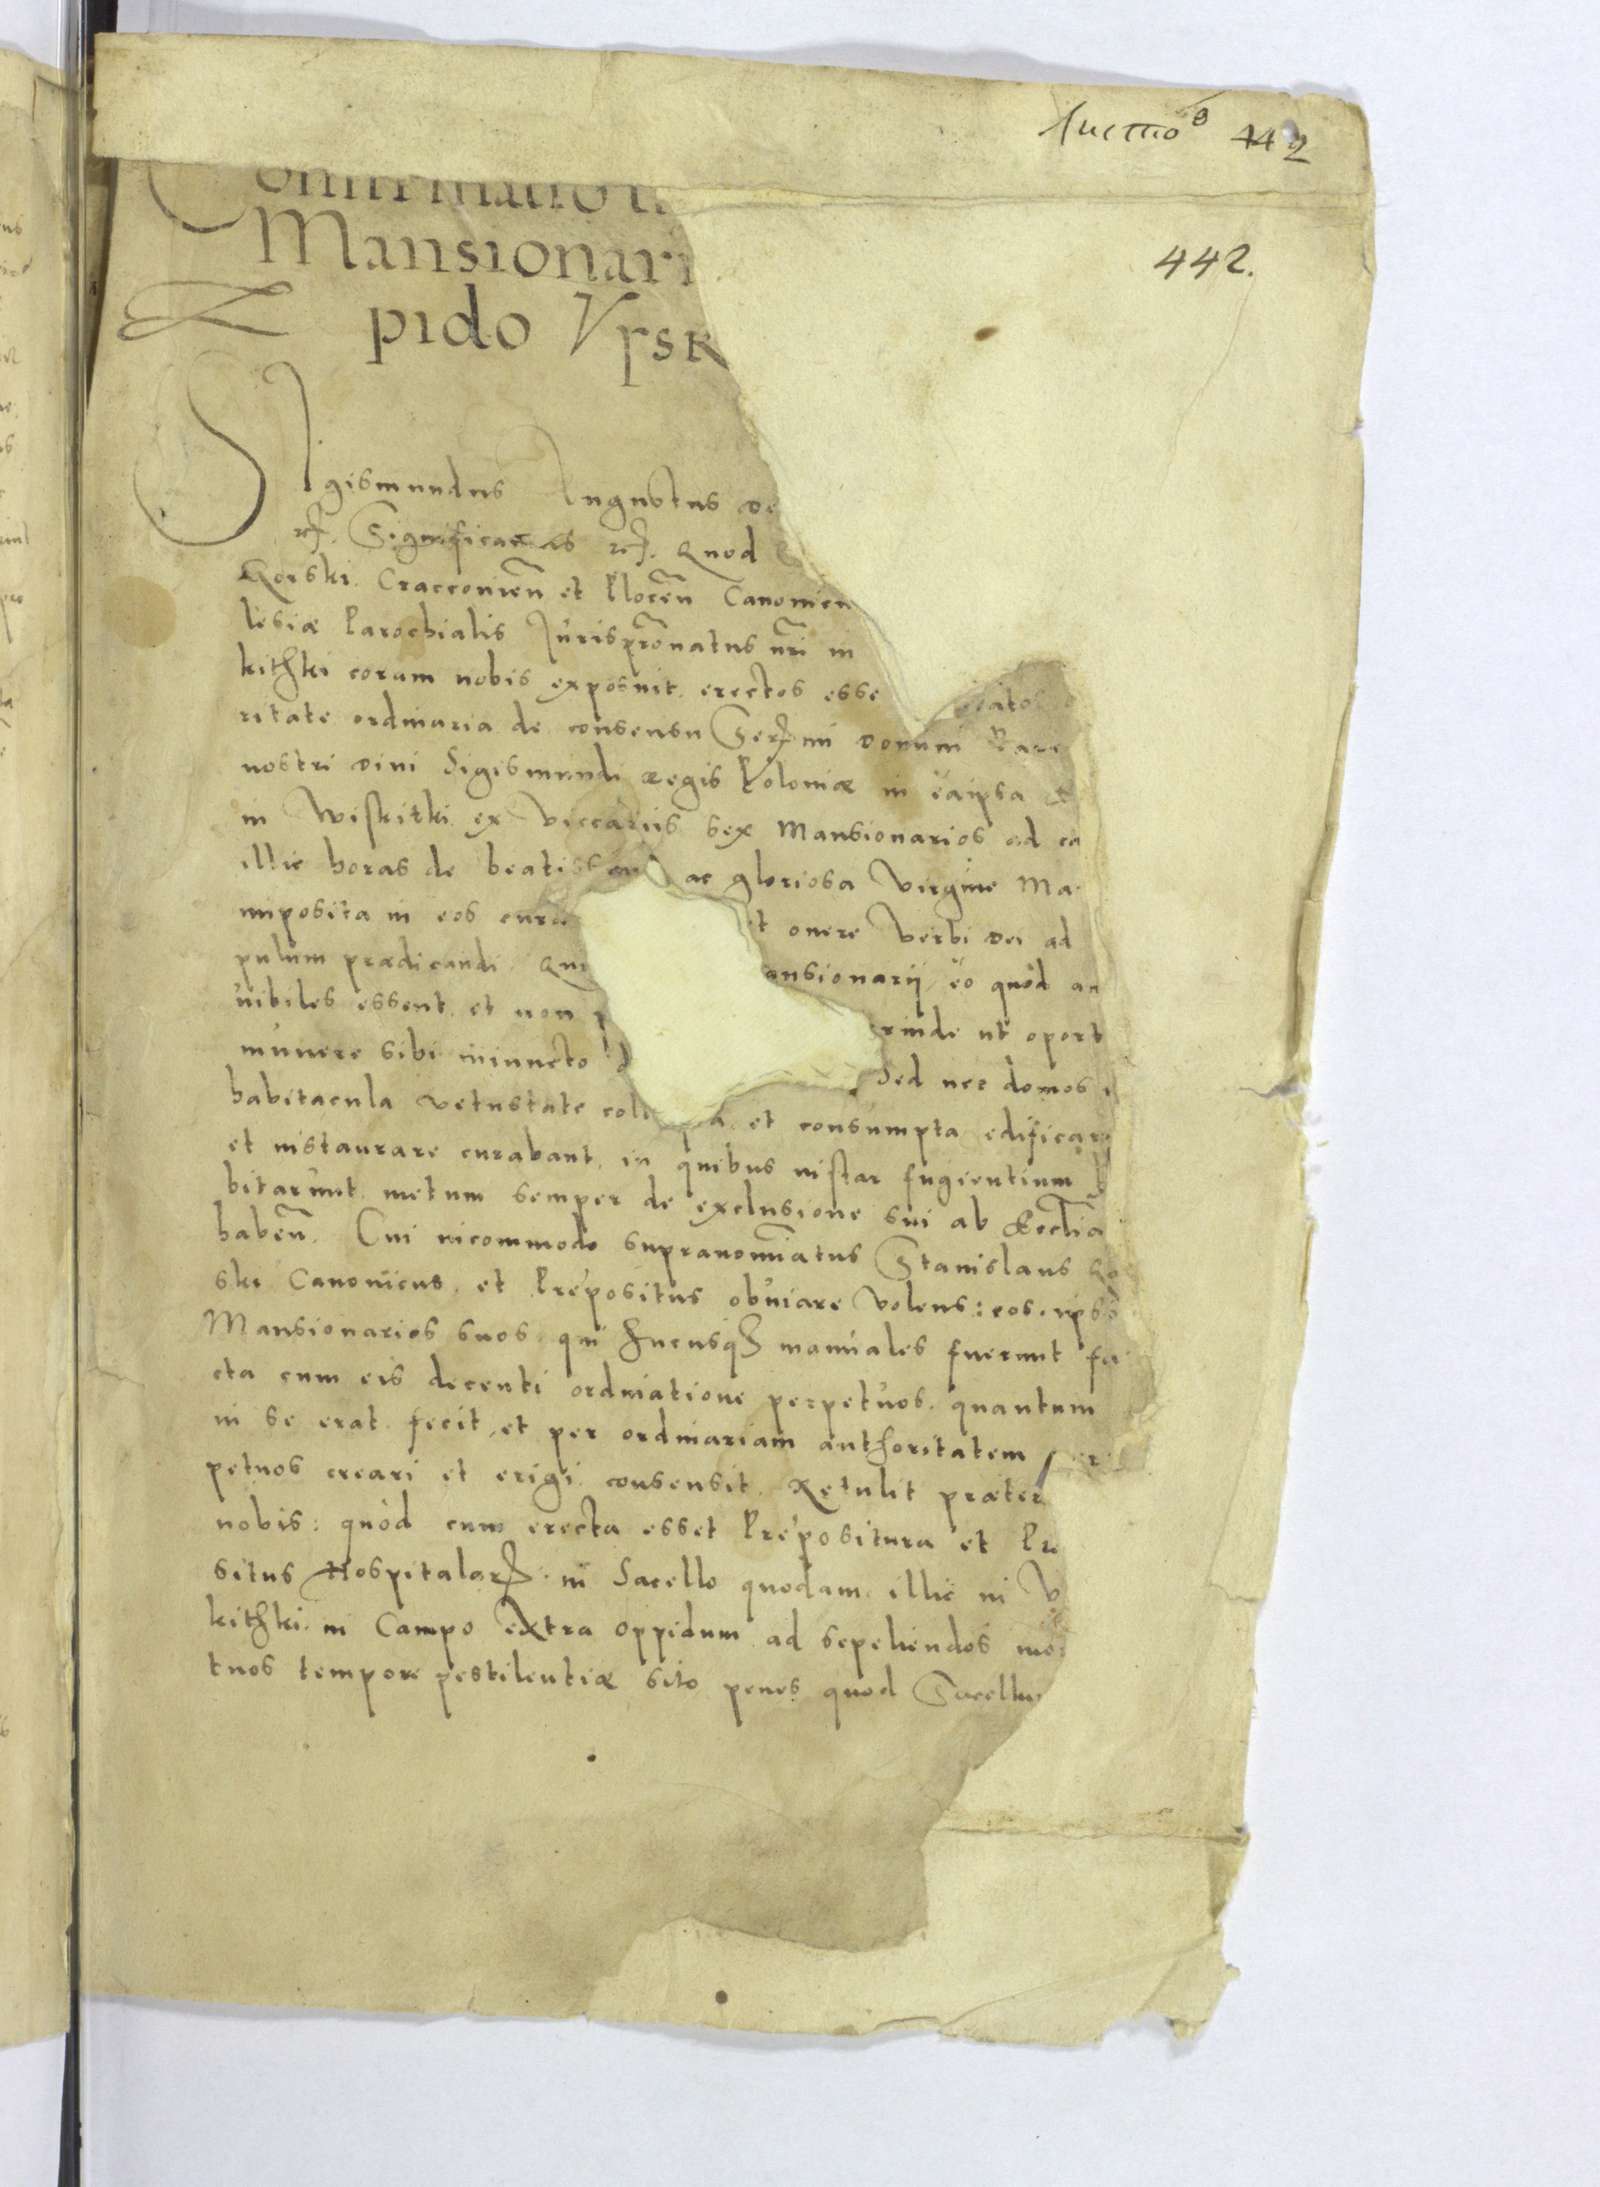 листо 442
442.
Confirmatio
Mansionari
pido Vysk
Sigismundus Augustus De
rcȝ. Significamus rcȝ. Quod
Gorski. Cracconien̄ et Plocen̄ Canonicu
lesiæ Parochialis Jurispr̄onatus nr̄i in
kithki coram nobis exposuit. erectos esse eatos
ritate ordinaria de consensu Serȝmi Domini Pare
nostri Divi Sigismundi Regis Poloniæ in eaipsa
in Wiskitki ex Viccariis sex Mansionarios ad ca
illic horas de beatissima ac gloriosa Virgine Ma
imposita in eos cura et onere Verbi Dei ad
pulum prædicandi. Qui ansionarij eo quòd am
uibiles essent. et non p erinde ut oport
munere sibi iniuncto Sed nec domos
habitacula vetustate coll pa et consumpta edificare
et instaurare curabant. in quibus instar fugientium
bitarunt. metum semper de exclusione sui ab Eccl̄ia
haben̄. Cui incommodo supranom̄iatus Stanislaus Go
ski Canonicus. et Præpositus obuiare volens: eos. ipso
Mansionarios suos. qui hucusqȝ manuales fuerunt fa
cta cum eis decenti ordinatione perpetuos. quantum
in se erat. fecit, et per ordinariam authoritatem per
petuos creari et erigi consensit. Retulit præter
nobis: quòd cum erecta esset Præpositura et Præ
situs Hospitalarȝ. in Sacello quodam. illic in V
kithki. in Campo extra oppidum ad sepeliendos mor
tuos tempore pestilentiæ sito penes quod Sacellu